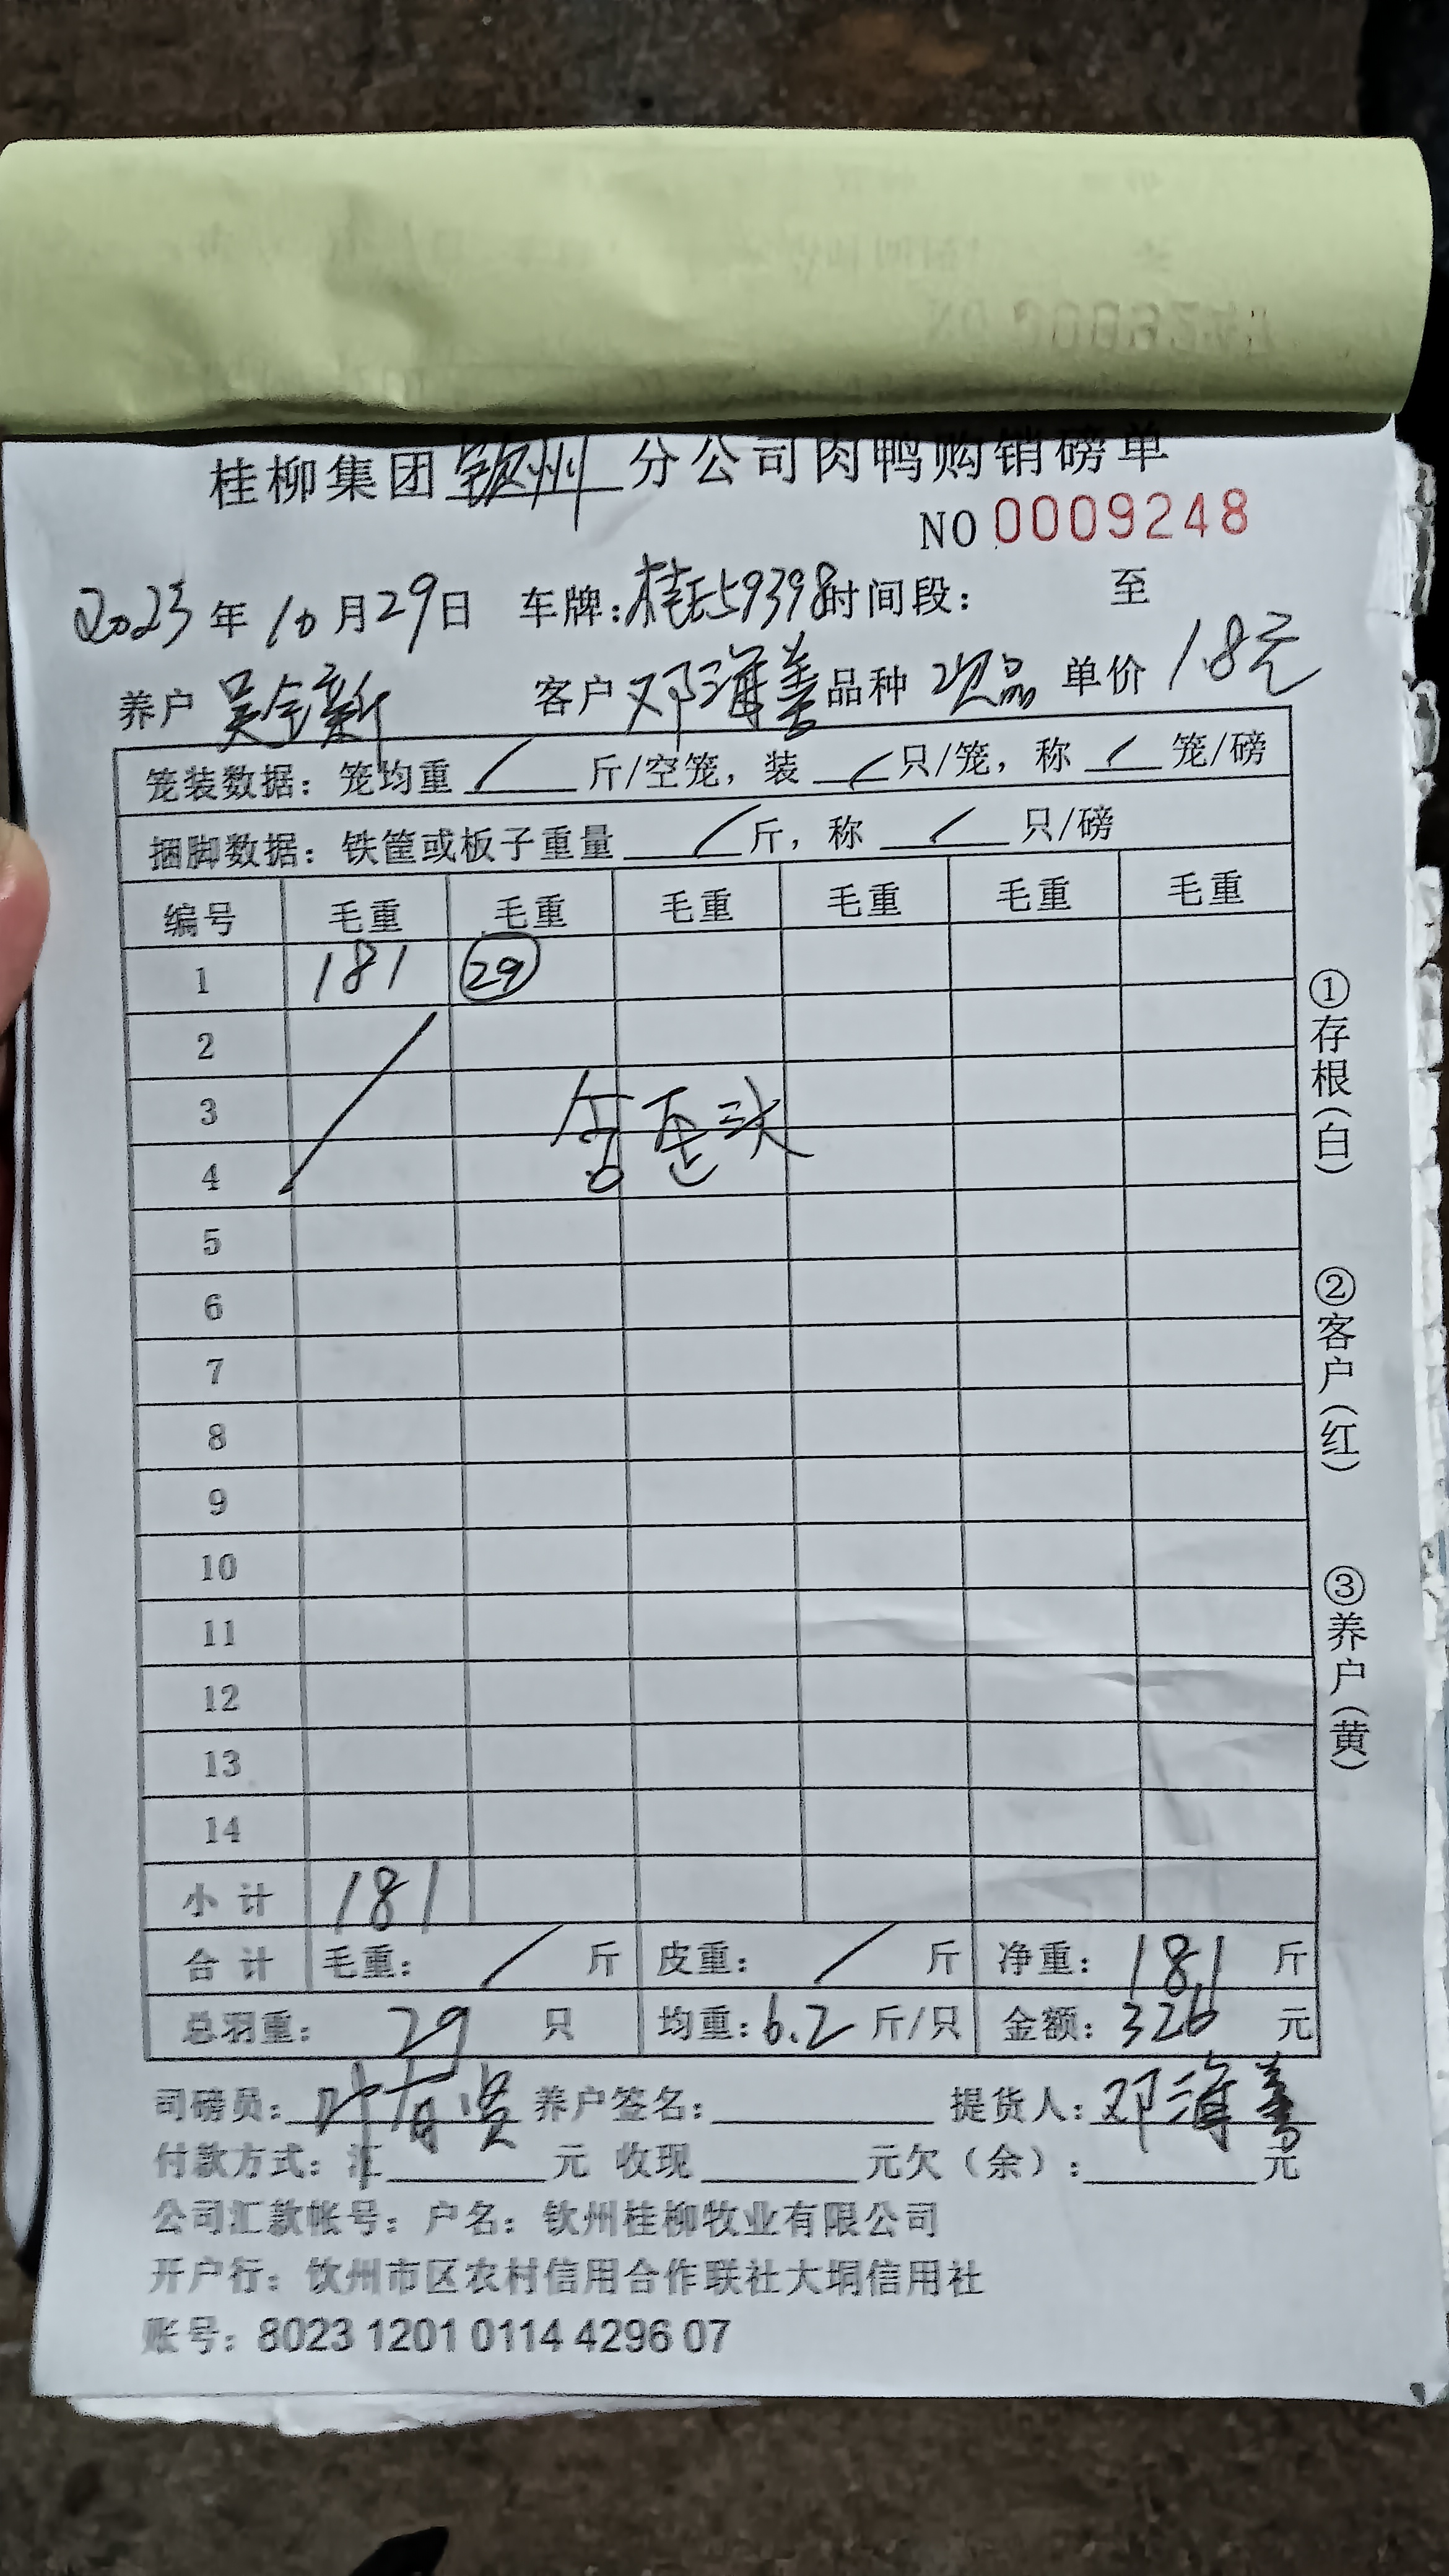 桂柳集团钦州分公司肉鸭购销磅单
NO 0009248
2023年10月29日 车牌:桂E59398时间段: 至
养户 吴全新 客户 邓海善 品种 次品 单价 1.8元
笼装数据:笼均重 / 斤/空笼,装 / 只/笼,称 / 笼/磅
捆脚数据:铁筐或板子重量 / 斤,称 / 只/磅
编号 毛重 毛重 毛重 毛重 毛重 毛重
1 181 29
2
3
4
歪头
5
6
7
8
9
10
11
12
13
14
小计 181
合计 毛重: / 斤 皮重: / 斤 净重: 181 斤
总羽重: 29 只 均重:6.2 斤/只 金额:326 元
司磅员:叶有贤 养户签名: 提货人:邓海善
付款方式:汇 元 收现 元欠(余): 元
公司汇款帐号:户名:钦州桂柳牧业有限公司
开户行:钦州市区农村信用合作联社大垌信用社
账号:8023 1201 0114 4296 07
①存根(白)
②客户(红)
③养户(黄)